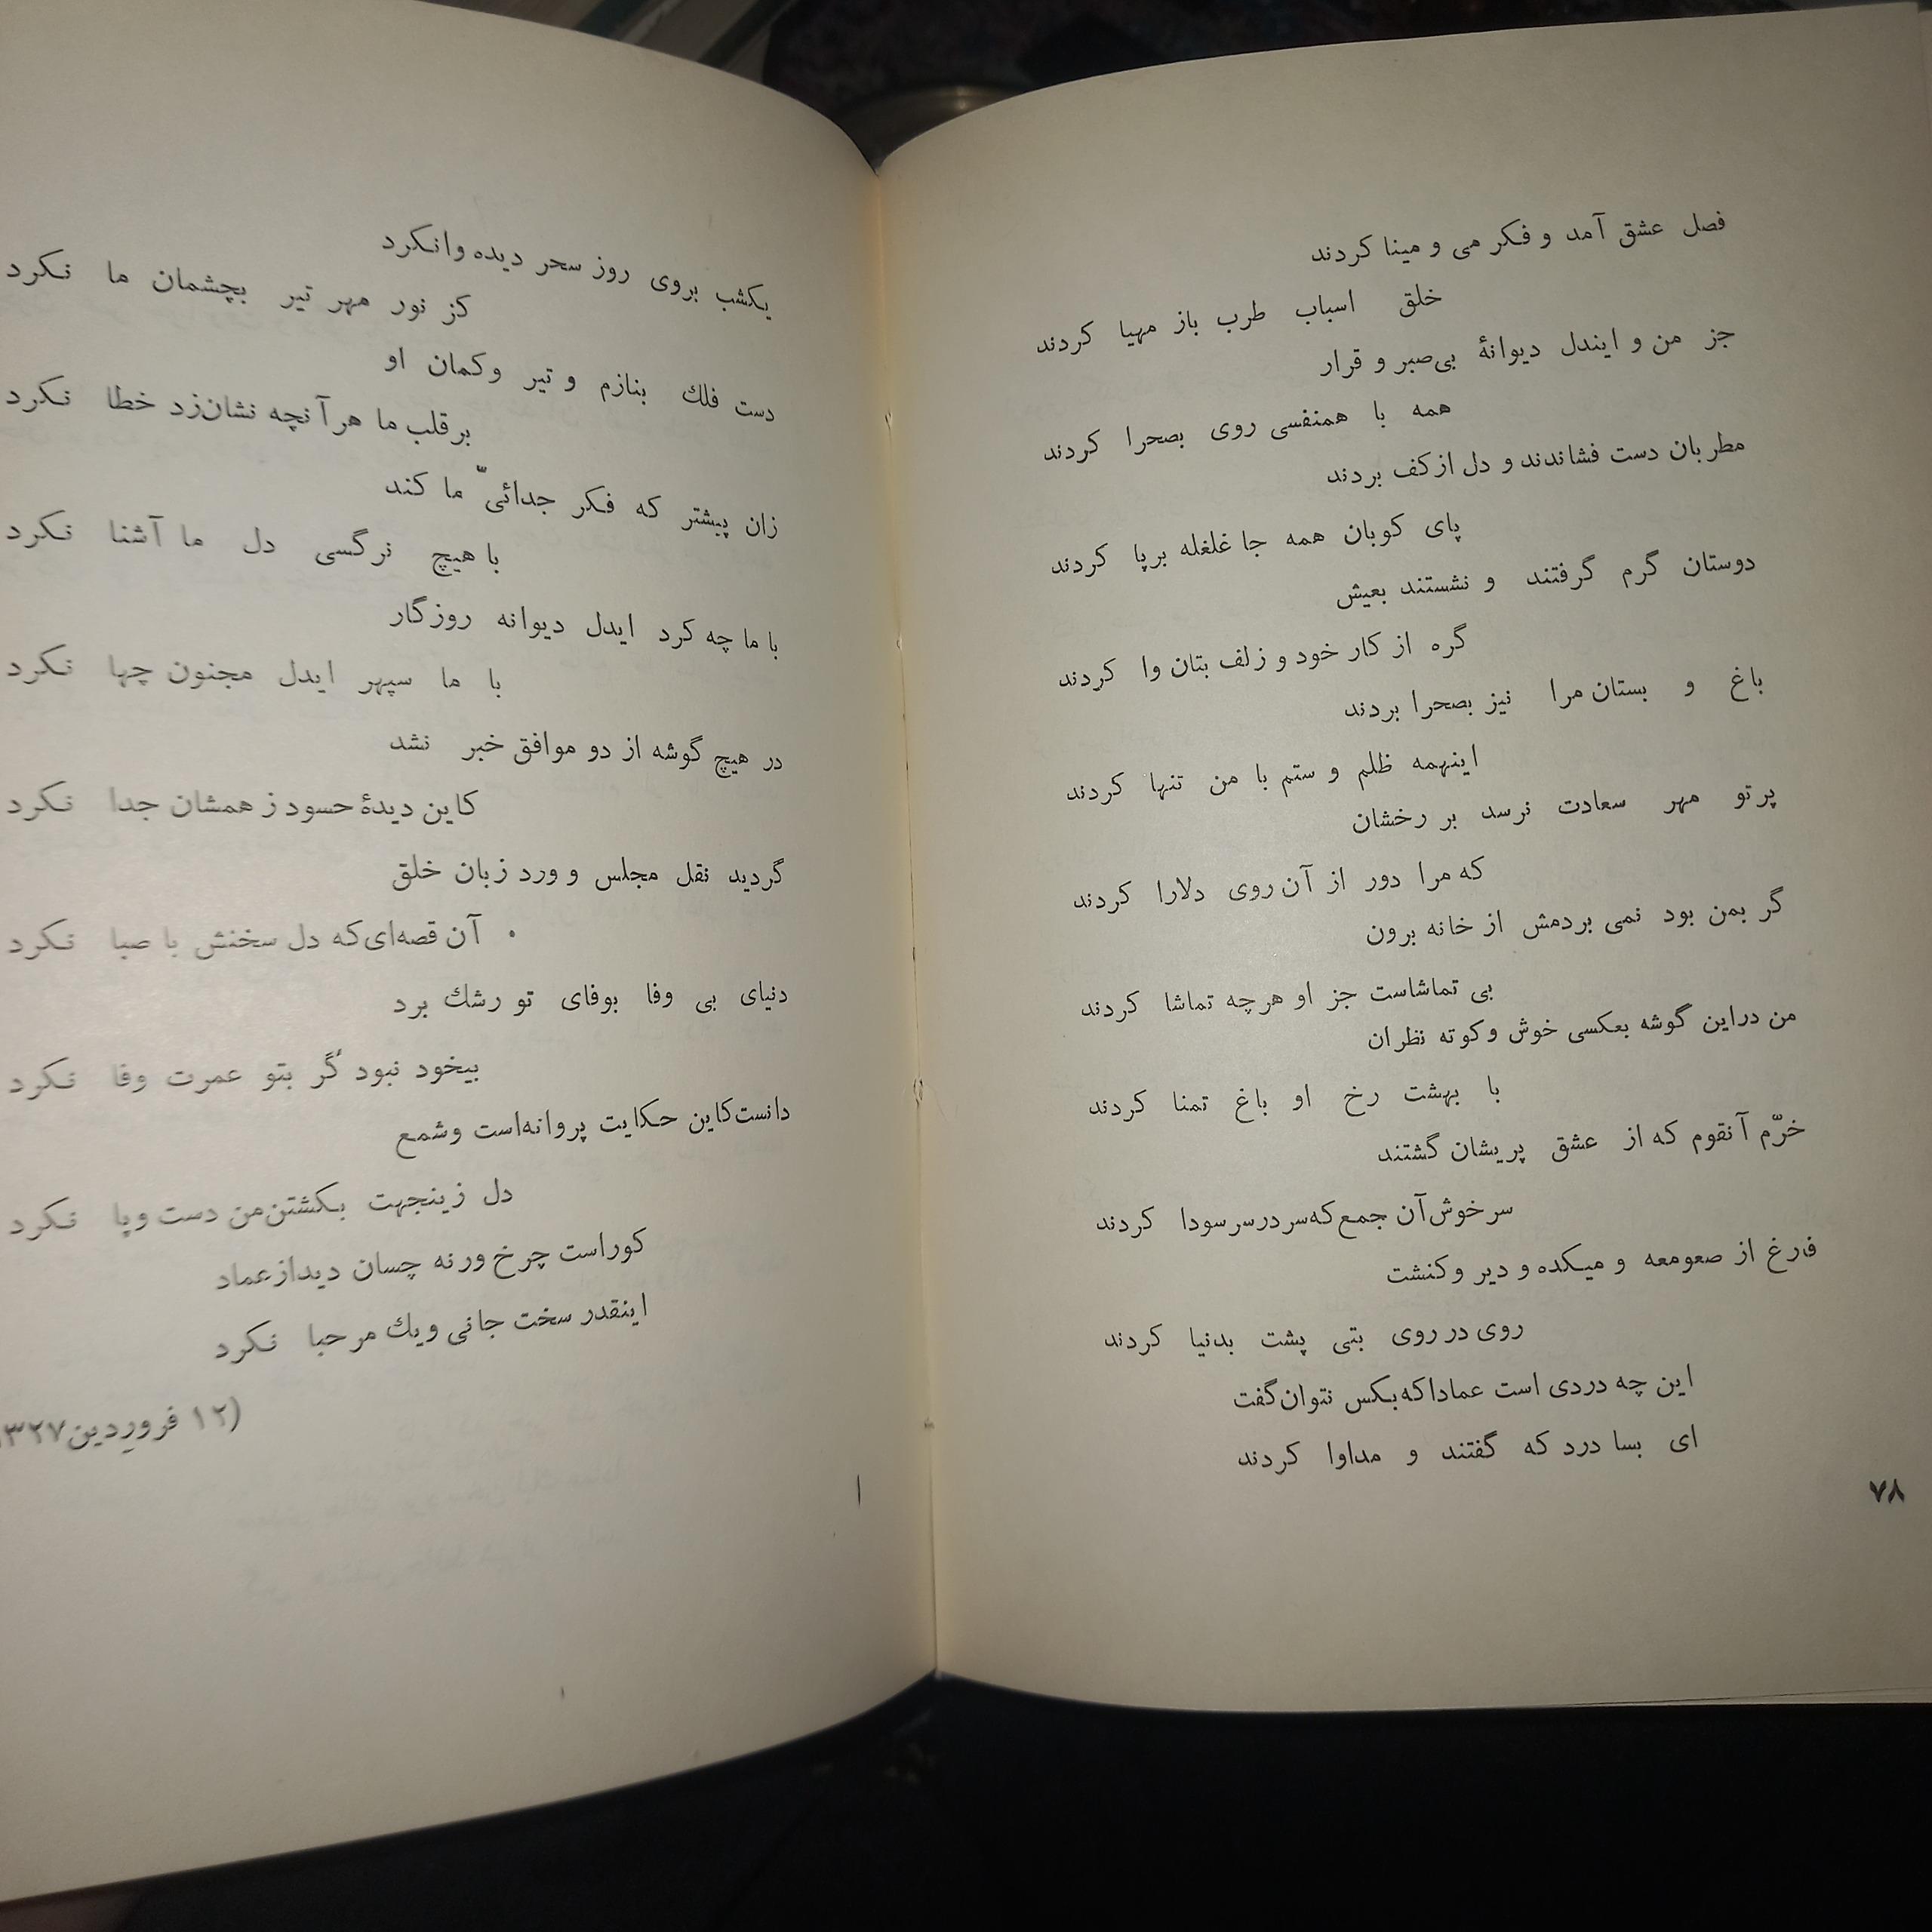 فصل عشق آمد و فکر می و مینا کردند
خلق اسباب طرب باز مهیا کردند
جز من و ایندل دیوانهٔ بی‌صبر و قرار
همه با همنفسی روی بصحرا کردند
مطربان دست فشاندند و دل از کف بردند
پای کوبان همه جا غلغله برپا کردند
دوستان گرم گرفتند و نشستند بعیش
گره از کار خود و زلف بتان وا کردند
باغ و بستان مرا نیز بصحرا بردند
اینهمه ظلم و ستم با من تنها کردند
پرتو مهر سعادت نرسد بر رخشان
که مرا دور از آن روی دلارا کردند
گر بمن بود نمی بردمش از خانه برون
بی تماشاست جز او هرچه تماشا کردند
من در این گوشه بعکسی خوش و کوته نظران
با بهشت رخ او باغ تمنا کردند
خرّم آنقوم که از عشق پریشان گشتند
سرخوش آن جمع که سر در سر سودا کردند
فارغ از صعومعه و میکده و دیر و کنشت
روی در روی بتی پشت بدنیا کردند
این چه دردی است عمادا که بکس نتوان گفت
ای بسا درد که گفتند و مداوا کردند
۷۸
یکشب بروی روز سحر دیده وانکرد
کز نور مهر تیر بچشمان ما نکرد
دست فلک بنازم و تیر و کمان او
بر قلب ما هر آنچه نشان زد خطا نکرد
زان پیشتر که فکر جدائیّ ما کند
با هیچ نرگسی دل ما آشنا نکرد
با ما چه کرد ایدل دیوانه روزگار
با ما سپهر ایدل مجنون چها نکرد
در هیچ گوشه از دو موافق خبر نشد
کاین دیدهٔ حسود ز همشان جدا نکرد
گردید نقل مجلس و ورد زبان خلق
آن قصه‌ای که دل سخنش با صبا نکرد
دنیای بی وفا بوفای تو رشک برد
بیخود نبود گر بتو عمرت وفا نکرد
دانست کاین حکایت پروانه است و شمع
دل زینجهت بکشتن من دست و پا نکرد
کور است چرخ ورنه چسان دید از عماد
اینقدر سخت جانی و یک مرحبا نکرد
(۱۲ فروردین ۱۳۲۷